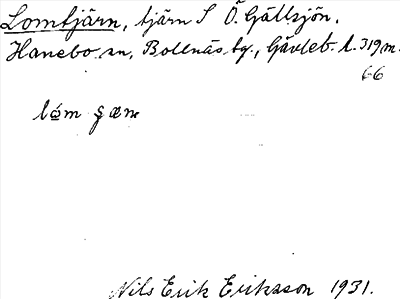 Lomtjärn, tjärn S Ö. Gällsjön,
Hanebo sn, Bollnäs tg., Gävleb. l. 319 m.
66
lóm
Nils Erik Eriksson 1931.